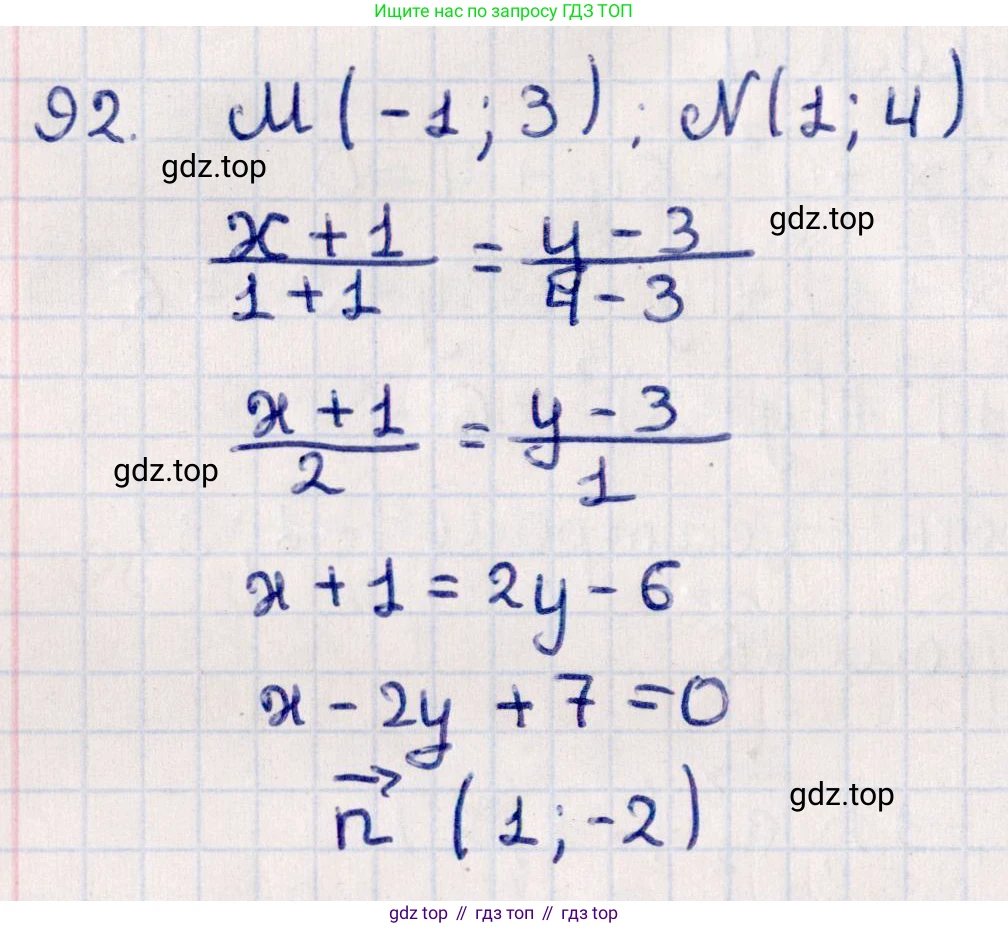 Ищите нас по запросу ГДЗ ТОП
92. M(-1; 3); N(1; 4)
gdz.top
gdz.top
(x + 1)/(1 + 1) = (y - 3)/(4 - 3)
(x + 1)/2 = (y - 3)/1
gdz.top
x + 1 = 2y - 6
x - 2y + 7 = 0
n⃗ (1; -2)
gdz.top
gdz top // гдз топ // gdz top